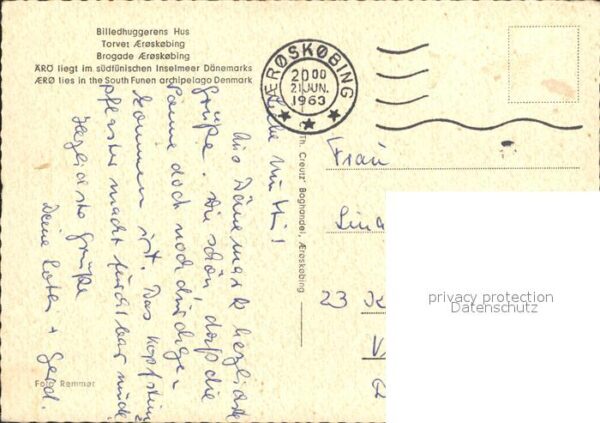 Billedhuggerens Hus
Torvet Ærøskøbing
Brogade Ærøskøbing
ÄRÖ liegt im südfünischen Inselmeer Dänemarks
ÆRØ lies in the South Funen archipelago Denmark
ÆRØSKØBING
20 00
21 JUN.
1963
Mutti!
Aus Dänemark herzliche
Grüße. Wie schön, daß die
Sonne doch noch durchge-
kommen ist. Das Kopfstein
pflaster macht furchtbar müde
Herzliche Grüße
Deine + Gerd.
Th. Creutz' Boghandel, Ærøskøbing
Frau
23
Foto Rammer
privacy protection
Datenschutz